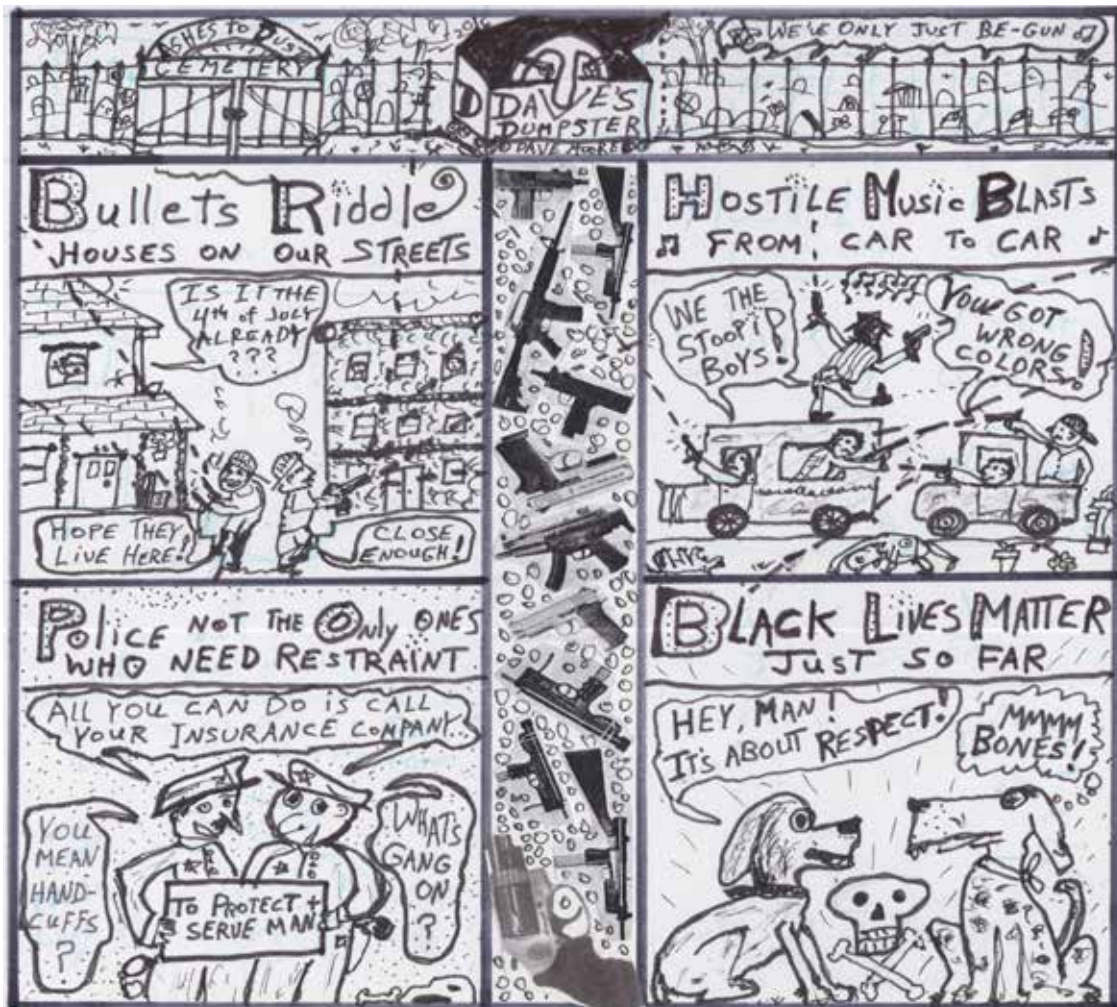 ASHES TO DUST
CEMETERY
D DAVE'S
DUMPSTER
WE'RE ONLY JUST BE-GUN
Bullets Riddle
HOUSES ON OUR STREETS
IS IT THE
4th of JULY
ALREADY
???
HOPE THEY
LIVE HERE!
CLOSE
ENOUGH!
HOSTILE MUSIC BLASTS
FROM CAR TO CAR
WE THE
STOOPID
BOYS!
YOU GOT
WRONG
COLORS!
POLICE NOT THE ONLY ONES
WHO NEED RESTRAINT
ALL YOU CAN DO IS CALL
YOUR INSURANCE COMPANY...
YOU
MEAN
HAND-
CUFFS
?
WHAT'S
GANG
ON
?
TO PROTECT +
SERVE MAN
BLACK LIVES MATTER
JUST SO FAR
HEY, MAN!
IT'S ABOUT RESPECT!
MMMM
BONES!